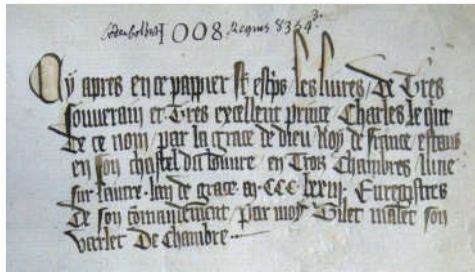 Codex Colbert 1008 Regius 8354 3.
Cy apres en ce papier st escps / les liures / de tres
souuerain et tres excellent prince / Charles le quit
de ce nom / par la grace de dieu / Roy de france / estans
en son chastel du louure / en trois chambres / lune
sur lautre · lan de grace · m · CCC · lxxiii · Enregistres
de son comandement / par moy / Gilet malet son
varlet de chambre ·